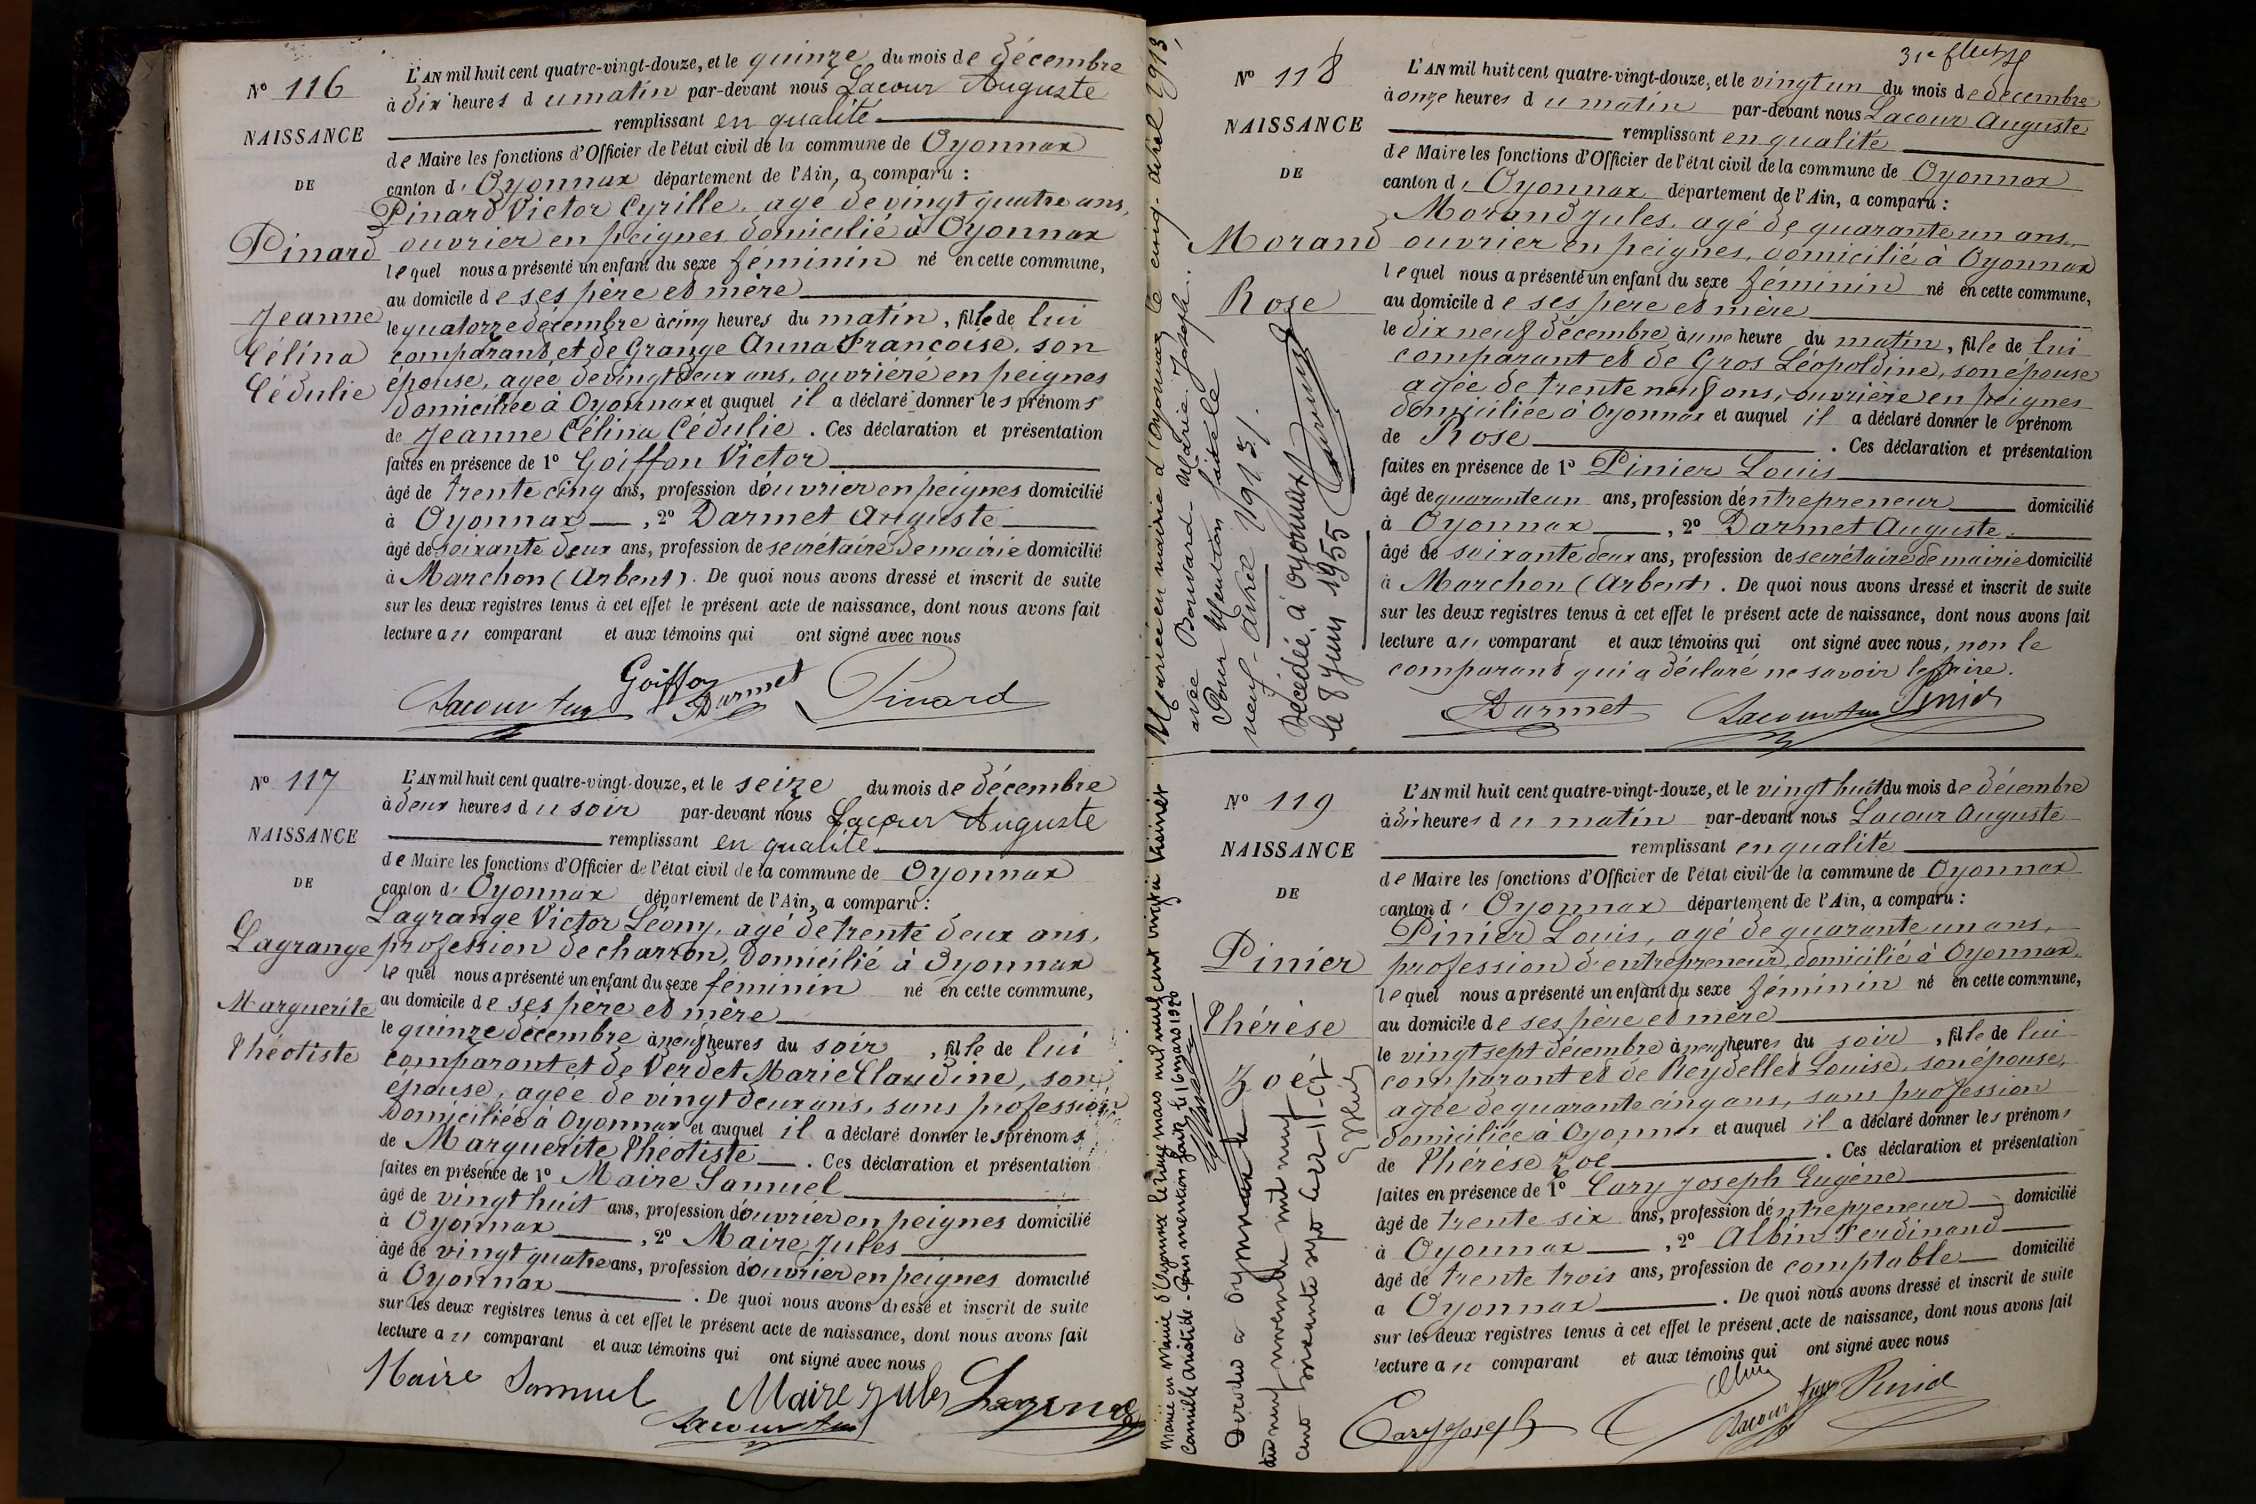 N° 116
NAISSANCE
DE
Pinard
Jeanne
Célina
Cédulie
L'AN mil huit cent quatre-vingt-douze, et le quinze du mois de décembre
à dix heures du matin par-devant nous Lacour Auguste
remplissant en qualité
de Maire les fonctions d'Officier de l'état civil de la commune de Oyonnax
canton d'Oyonnax département de l'Ain, a comparu :
Pinard Victor Cyrille, agé de vingt quatre ans,
ouvrier en peignes, domicilié à Oyonnax
lequel nous a présenté un enfant du sexe féminin né en cette commune,
au domicile de ses père et mère
le quatorze décembre à cinq heures du matin, fille de lui
comparant et de Grange Anna Francoise, son
épouse, agée de vingt deux ans, ouvrière en peignes
domiciliée à Oyonnax et auquel il a déclaré donner les prénoms
de Jeanne Célina Cédulie. Ces déclaration et présentation
faites en présence de 1° Goiffon Victor
âgé de trente cinq ans, profession d'ouvrier en peignes domicilié
à Oyonnax, 2° Darmet Auguste
âgé de soixante deux ans, profession de secrétaire de mairie domicilié
à Marchon (Arbent). De quoi nous avons dressé et inscrit de suite
sur les deux registres tenus à cet effet le présent acte de naissance, dont nous avons fait
lecture au comparant et aux témoins qui ont signé avec nous
Goiffon
Lacour Aug Darmet Pinard
N° 117
NAISSANCE
DE
Lagrange
Marguerite
Théotiste
L'AN mil huit cent quatre-vingt-douze, et le seize du mois de décembre
à deux heures du soir par-devant nous Lacour Auguste
remplissant en qualité
de Maire les fonctions d'Officier de l'état civil de la commune de Oyonnax
canton d'Oyonnax département de l'Ain, a comparu :
Lagrange Victor Léony, agé de trente deux ans,
profession de charron, domicilié à Oyonnax
lequel nous a présenté un enfant du sexe féminin né en cette commune,
au domicile de ses père et mère
le quinze décembre à neuf heures du soir, fille de lui
comparant et de Verdet Marie Claudine, son
épouse, agée de vingt deux ans, sans profession
domiciliée à Oyonnax et auquel il a déclaré donner les prénoms
de Marguerite Théotiste. Ces déclaration et présentation
faites en présence de 1° Maire Samuel
âgé de vingt huit ans, profession d'ouvrier en peignes domicilié
à Oyonnax, 2° Maire Jules
âgé de vingt quatre ans, profession d'ouvrier en peignes domicilié
à Oyonnax. De quoi nous avons dressé et inscrit de suite
sur les deux registres tenus à cet effet le présent acte de naissance, dont nous avons fait
lecture au comparant et aux témoins qui ont signé avec nous
Maire Samuel Maire Jules Lagrange
Lacour Aug
N° 118
NAISSANCE
DE
Morand
Rose
Mariée en mairie d'Oyonnax le cinq avril 1913,
avec Bouvard Marie Joseph.
Pour Mention faite le
neuf avril 1913.
Décédée à Oyonnax
le 8 juin 1955
31e
L'AN mil huit cent quatre-vingt-douze, et le vingt un du mois de décembre
à onze heures du matin par-devant nous Lacour Auguste
remplissant en qualité
de Maire les fonctions d'Officier de l'état civil de la commune de Oyonnax
canton d'Oyonnax département de l'Ain, a comparu :
Morand Jules, agé de quarante un ans,
ouvrier en peignes, domicilié à Oyonnax
lequel nous a présenté un enfant du sexe féminin né en cette commune,
au domicile de ses père et mère
le dix neuf décembre à une heure du matin, fille de lui
comparant et de Gros Léopoldine, son épouse
agée de trente neuf ans, ouvrière en peignes
domiciliée à Oyonnax et auquel il a déclaré donner le prénom
de Rose. Ces déclaration et présentation
faites en présence de 1° Pinier Louis
âgé de quarante un ans, profession d'entrepreneur domicilié
à Oyonnax, 2° Darmet Auguste.
âgé de soixante deux ans, profession de secrétaire de mairie domicilié
à Marchon (Arbent). De quoi nous avons dressé et inscrit de suite
sur les deux registres tenus à cet effet le présent acte de naissance, dont nous avons fait
lecture au comparant et aux témoins qui ont signé avec nous, non le
comparant qui a déclaré ne savoir le faire.
Darmet Lacour Aug Pinier
N° 119
NAISSANCE
DE
Pinier
Thérèse
Zoé
Mariée en Mairie d'Oyonnax le seize mars mil neuf cent vingt à
Camille Aristide - Pour mention faite le 16 mars 1920
Décédée à Oyonnax le
dix neuf novembre mil neuf
cent soixante sept le 22-11-67
L'AN mil huit cent quatre-vingt-douze, et le vingt huit du mois de décembre
à dix heures du matin par-devant nous Lacour Auguste
remplissant en qualité
de Maire les fonctions d'Officier de l'état civil de la commune de Oyonnax
canton d'Oyonnax département de l'Ain, a comparu :
Pinier Louis, agé de quarante un ans,
profession d'entrepreneur, domicilié à Oyonnax.
lequel nous a présenté un enfant du sexe féminin né en cette commune,
au domicile de ses père et mère
le vingt sept décembre à neuf heures du soir, fille de lui
comparant et de Reydellet Louise, son épouse,
agée de quarante cinq ans, sans profession
domiciliée à Oyonnax et auquel il a déclaré donner les prénoms
de Thérèse Zoé. Ces déclaration et présentation
faites en présence de 1° Cary Joseph Eugène
âgé de trente six ans, profession d'entrepreneur domicilié
à Oyonnax, 2° Albin Ferdinand
âgé de trente trois ans, profession de comptable domicilié
a Oyonnax. De quoi nous avons dressé et inscrit de suite
sur les deux registres tenus à cet effet le présent acte de naissance, dont nous avons fait
lecture au comparant et aux témoins qui ont signé avec nous
Cary Joseph Albin Lacour Aug Pinier